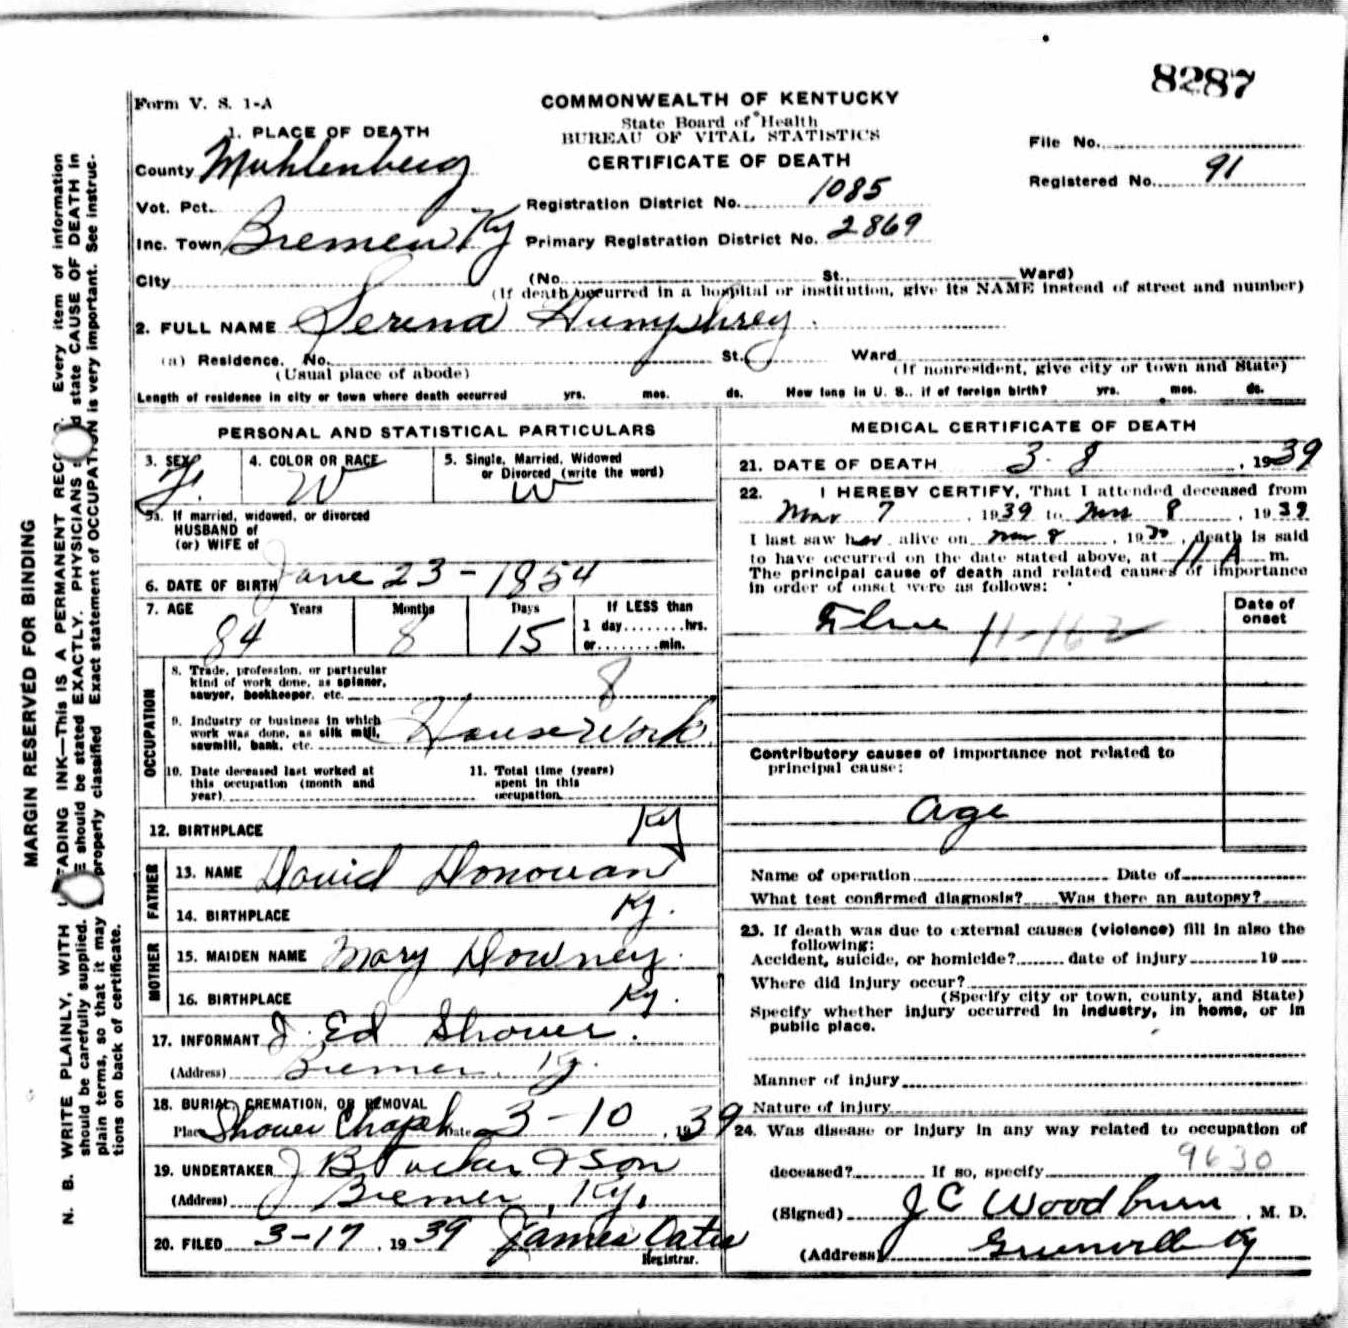 8287
Form V. S. 1-A
COMMONWEALTH OF KENTUCKY
State Board of Health
BUREAU OF VITAL STATISTICS
CERTIFICATE OF DEATH
File No.
Registered No. 91
1. PLACE OF DEATH
County Muhlenberg
Vot. Pct.
Registration District No. 1085
Inc. Town Bremen Ky
Primary Registration District No. 2869
City
(No. St. Ward)
(If death occurred in a hospital or institution, give its NAME instead of street and number)
2. FULL NAME Serena Humphrey.
(a) Residence. No. St. Ward
(Usual place of abode) (If nonresident, give city or town and State)
Length of residence in city or town where death occurred yrs. mos. ds. How long in U. S., if of foreign birth? yrs. mos. ds.
PERSONAL AND STATISTICAL PARTICULARS
3. SEX F. 4. COLOR OR RACE W 5. Single, Married, Widowed
or Divorced (write the word) W
5a. If married, widowed, or divorced
HUSBAND of
(or) WIFE of
6. DATE OF BIRTH June 23 - 1854
7. AGE Years Months Days If LESS than
84 8 15 1 day........hrs.
or........min.
OCCUPATION
8. Trade, profession, or particular
kind of work done, as spinner,
sawyer, bookkeeper, etc. 8
9. Industry or business in which
work was done, as silk mill,
sawmill, bank, etc. House Work
10. Date deceased last worked at
this occupation (month and
year)
11. Total time (years)
spent in this
occupation
12. BIRTHPLACE Ky
FATHER
13. NAME David Donovan
14. BIRTHPLACE Ky.
MOTHER
15. MAIDEN NAME Mary Downey.
16. BIRTHPLACE Ky.
17. INFORMANT J. Ed Shover.
(Address) Bremen, Ky.
18. BURIAL, CREMATION, OR REMOVAL
Place Shover Chapel Date 3-10, 1939
19. UNDERTAKER J B Tucker & Son
(Address) Bremen, Ky.
20. FILED 3-17, 1939 James Oates
Registrar.
MEDICAL CERTIFICATE OF DEATH
21. DATE OF DEATH 3-8, 1939
22. I HEREBY CERTIFY, That I attended deceased from
Mar 7, 1939 to Mar 8, 1939
I last saw her alive on Mar 8, 1939, death is said
to have occurred on the date stated above, at 11 A m.
The principal cause of death and related causes of importance
in order of onset were as follows:
Date of
onset
Flue
Contributory causes of importance not related to
principal cause:
Age
Name of operation Date of
What test confirmed diagnosis? Was there an autopsy?
23. If death was due to external causes (violence) fill in also the
following:
Accident, suicide, or homicide? date of injury 19
Where did injury occur?
(Specify city or town, county, and State)
Specify whether injury occurred in industry, in home, or in
public place.
Manner of injury
Nature of injury
24. Was disease or injury in any way related to occupation of
deceased? If so, specify 9630
(Signed) J C Woodburn, M. D.
(Address) Greenville Ky
MARGIN RESERVED FOR BINDING
N. B. WRITE PLAINLY, WITH FADING INK—THIS IS A PERMANENT Every item of information
should be carefully supplied. should be stated EXACTLY. PHYSICIANS state CAUSE OF DEATH in
plain terms, so that it may properly classified Exact statement of OCCUPATION is very important. See instruc-
tions on back of certificate.